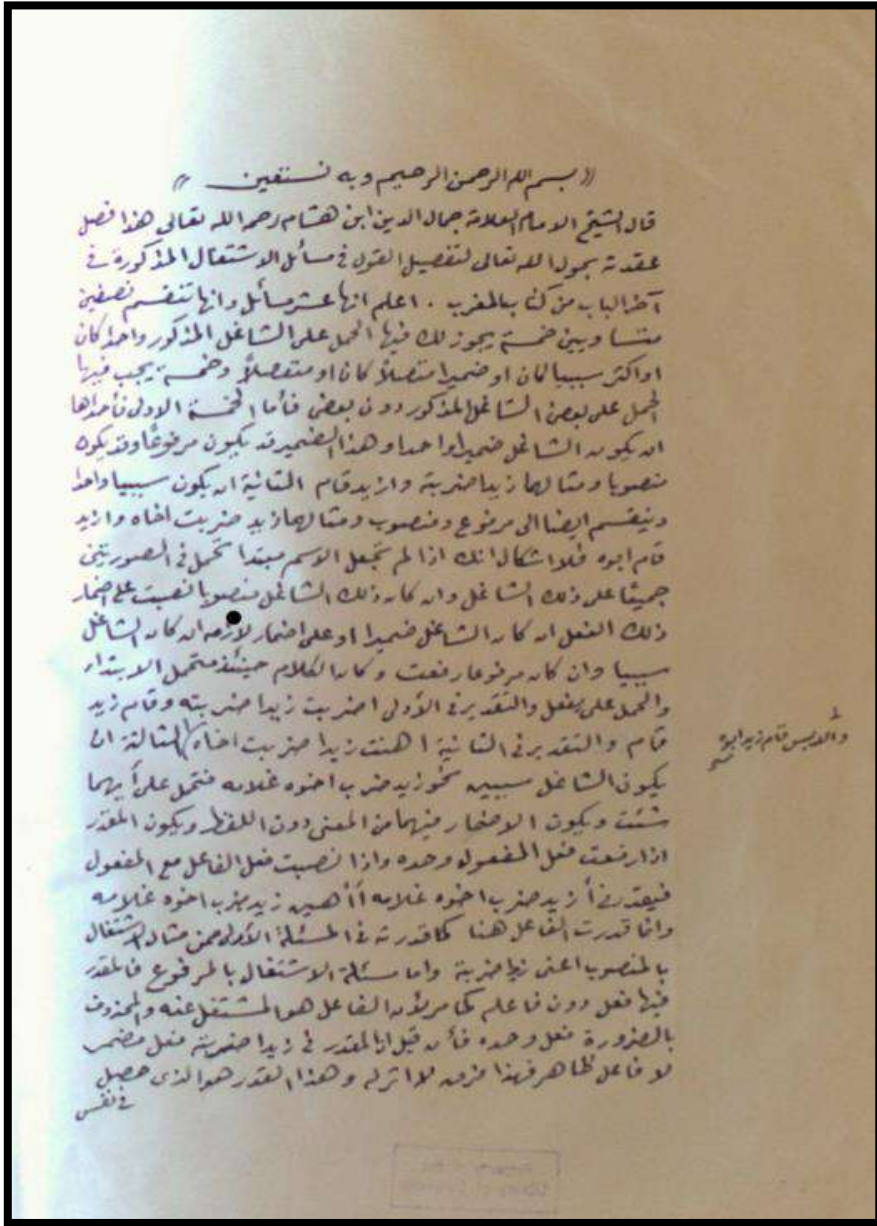 (( بسم الله الرحمن الرحيم وبه نستعين ))
قال الشيخ الامام العلامة جمال الدين ابن هشام رحمه الله تعالى هذا فصل
عقدته بحول الله تعالى لتفصيل القول في مسائل الاشتغال المذكورة في
آخر الباب من كتاب المغرب . اعلم انها عشر مسائل وانها تنقسم نصفين
متساويين خمسة يجوز لك فيها الحمل على الشاغل المذكور واحدا كان
او اكثر سببيا كان او ضميرا متصلاً كان او منفصلاً وخمسة يجب فيها
الحمل على بعض الشاغل المذكور دون بعض فأما الخمسة الاولى فأحداها
ان يكون الشاغل ضميرا واحدا وهذا الضمير قد يكون مرفوعاً وقد يكون
منصوبا ومثالهما زيدا ضربته وازيد قام الثانية ان يكون سببيا واحدا
وينقسم ايضا الى مرفوع ومنصوب ومثالهما زيد ضربت اخاه وازيد
قام ابوه فلا اشكال انك اذا لم تجعل الاسم مبتدا تحمل في الصورتين
جميعا على ذلك الشاغل وان كان ذلك الشاغل منصوبا نصبت على اضمار
ذلك الفعل ان كان الشاغل ضميرا او على اضمار لازمه ان كان الشاغل
سببيا وان كان مرفوعا رفعت وكان الكلام حينئذ محتمل الابتداء
والحمل على الفعل والتقدير في الأولى اضربت زيدا ضربته وقام زيد
قام والتقدير في الثانية اهنت زيدا ضربت اخاه الثالثة ان
يكون الشاغل سببين نحو زيد ضرب اخوه غلامه فتحمل على أيهما
شئت ويكون الاضمار فيهما من المعنى دون اللفظ ويكون المقدر
اذا رفعت فعل المفعول وحده واذا نصبت فعل الفاعل مع المفعول
فيقدر في أزيد ضرب اخوه غلامه أأهين زيد ضرب اخوه غلامه
وانما قدرت الفاعل هنا كما قدرته في المسئلة الأولى من مثال الاشتغال
بالمنصوب اعني زيدا ضربته واما مسئلة الاشتغال بالمرفوع فالمقدر
فيها فعل دون فاعله كما مر لأن الفاعل هو المشتغل عنه والمحذوف
بالضرورة فعل وحده فأن قيل ان المقدر في زيدا ضربته فعل مضمر
لا فاعل ظاهر فهذا فرق لا اثر له وهذا القدر هو الذي حصل
في نفس
والابس قام زيد ابوه